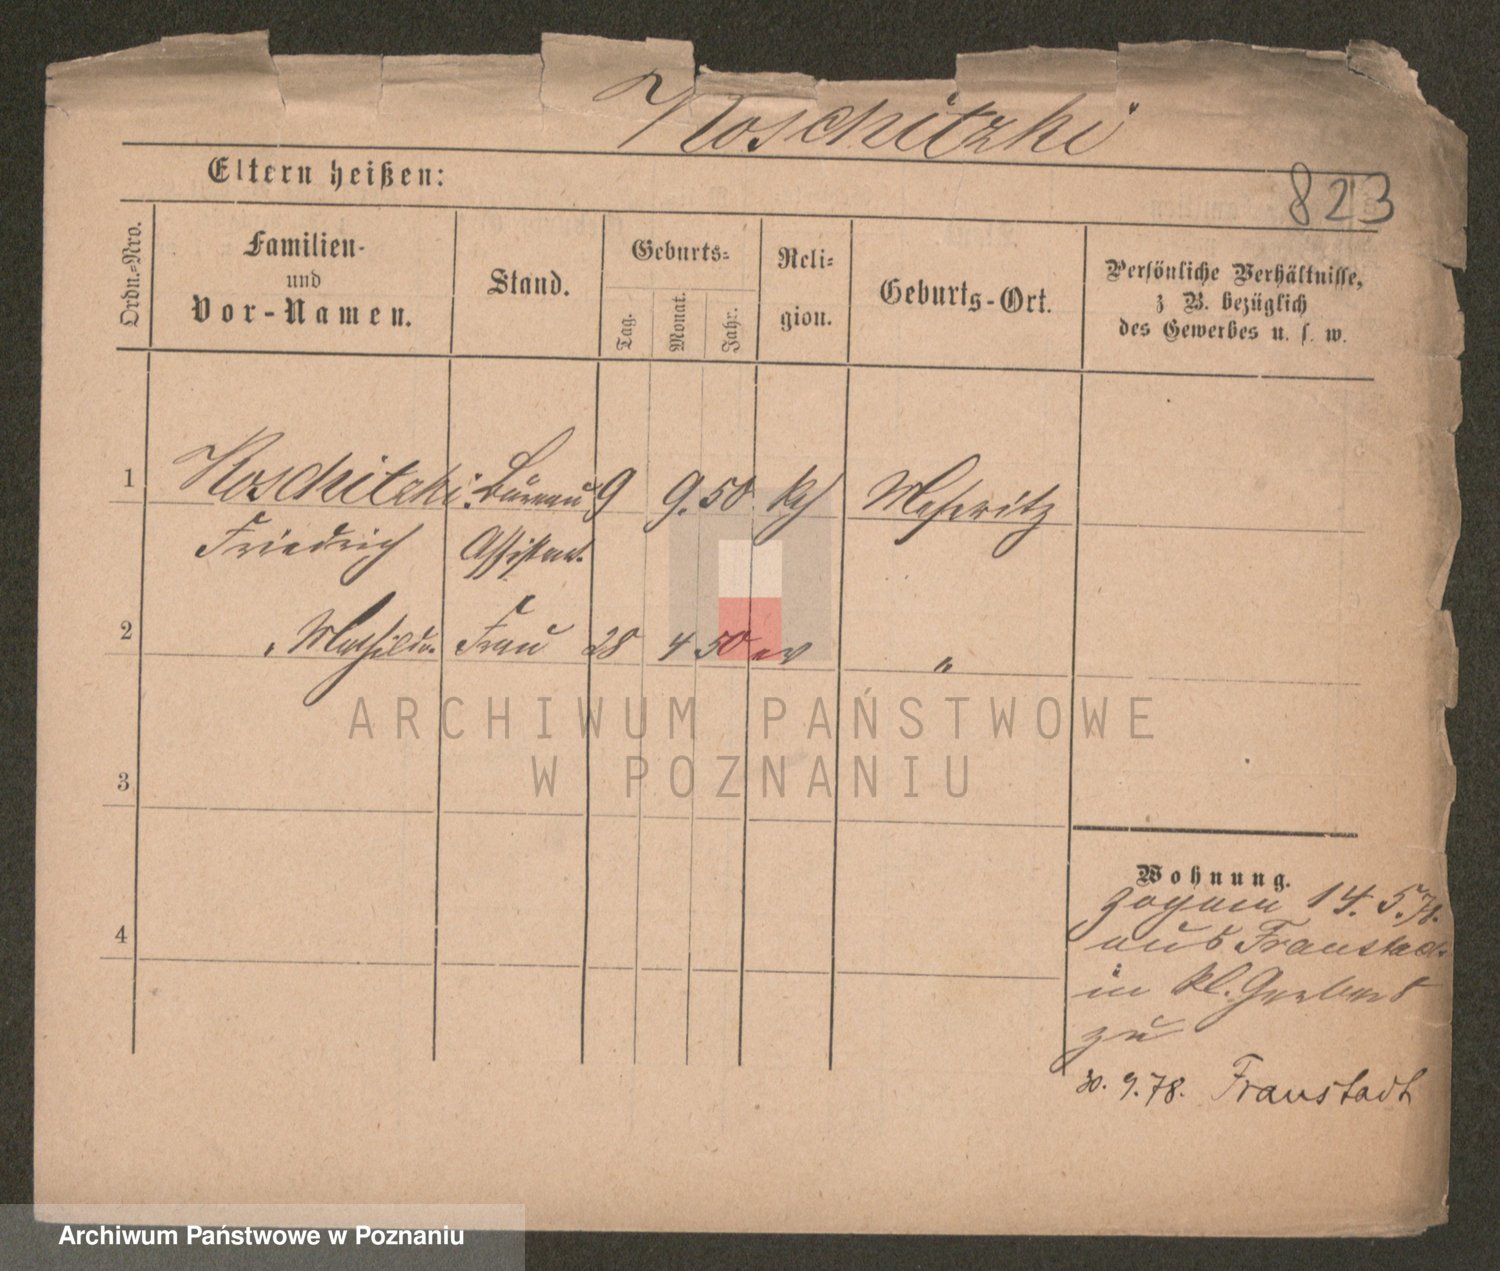 Koschitzki
823
Eltern heißen:
Ordn.=Nro.
Familien-
und
Vor-Namen.
Stand.
Geburts=
Tag.
Monat.
Jahr.
Reli=
gion.
Geburts-Ort.
Persönliche Verhältnisse,
z B. bezüglich
des Gewerbes u. s. w.
1 Koschitzki Büreau 9 9. 50 kth Meseritz
Friedrich Assistent.
2 Mathilde Frau 28 4 50 ev "
ARCHIWUM PAŃSTWOWE
W POZNANIU
3
Wohnung.
zogen 14. 5. 78.
4
aus Fraustadt
in kl. Gerberst
zu
30. 9. 78. Fraustadt
Archiwum Państwowe w Poznaniu